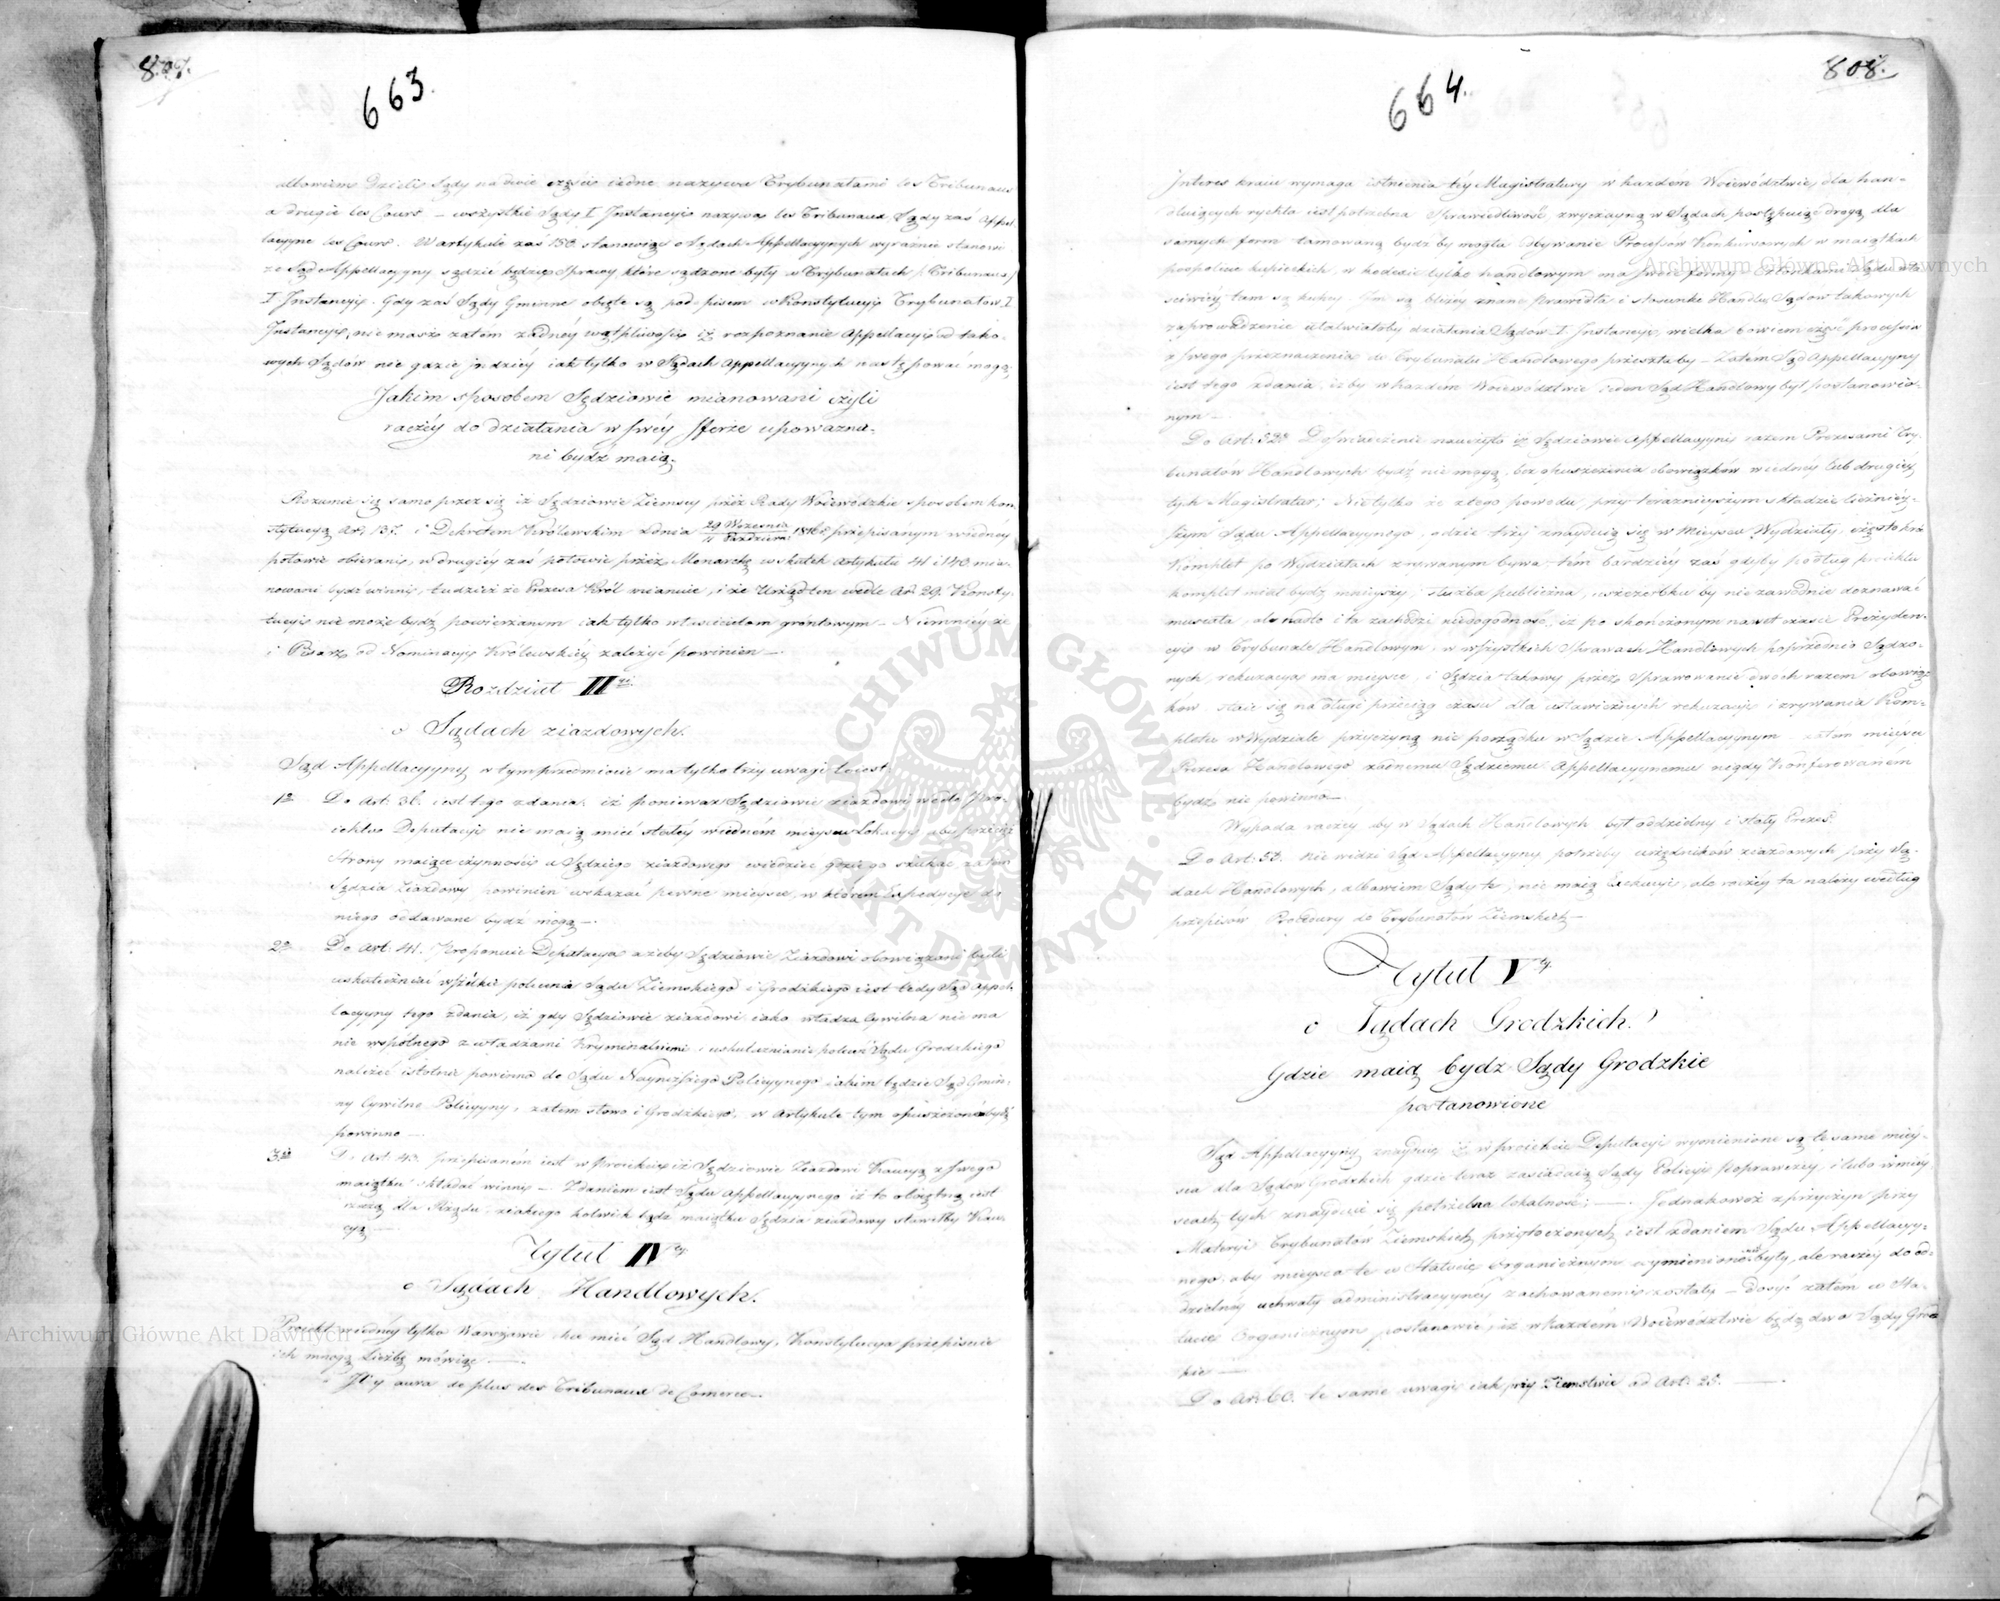 807.
663.
albowiem Dzieli Sądy na dwie części iedne nazywa Trybunałami les Tribunaux
a drugie les Cours – wszystkie Sądy I Instancyi nazywa les Tribunaux, Sądy zaś Appel-
lacyine les Cours. W artykule zaś 138 stanowiąc o Sądach Appellacyinych wyraźnie stanowi
że Sąd Appellacyiny sądzić będzie Sprawy, które sądzone były w Trybunałach /: Tribunaux :/
I Instancyi. Gdy zaś Sądy Gminne obięte są pod opisem w Konstytucyi Trybunałów I
Instancyi, nie masz zatem żadnéy wątpliwości iż rozpoznanie Appellacyi od tako-
wych Sądów nie gdzie indziéy iak tylko w Sądach Appellacyinych następować mogą.
Jakim sposobem Sędziowie mianowani czyli
raczéy do działania w swéy Sferze upoważnie-
ni bydź maią.
Rozumie się samo przez się iż Sędziowie Ziemscy przez Rady Woiewódzkie sposobem kon-
stytucyą Art. 137. i Dekretem Królewskim z dnia 29 Września / 11 Paździer: przepisanym w iednéy
połowie obierani, w drugiéy zaś połowie przez Monarchę w skutek Artykułu 41 i 140 mia-
nowani bydź winni, tudzież że Prezesa Król mianuie, i że Urząd ten wedle Art. 29. Konsty-
tucyi nie może bydź powierzonym iak tylko właścicielom gruntowym – Niemniéy że
i Pisarz od Nominacyi Królewskiéy zależyć powinien –
Rozdział III
o Sądach ziazdowych.
Sąd Appellacyiny w tym przedmiocie ma tylko trzy uwagi to iest
1o Do Art. 36. iest tego zdania, iż ponieważ Sędziowie ziazdowi wedle Pro-
iektu Deputacyi nie maią mieć stałéy w iedném mieyscu Lokacyi, aby przecież
Strony maiące czynności u Sędziego ziazdowego wiedzieć gdzie go szukać, zatem
Sędzia Ziazdowy powinien wskazać pewne mieysce, w którém Expedycye do
niego oddawane bydź mogą –
2o Do Art. 41. Proponuie Deputacya ażeby Sędziowie Ziazdowi obowiązani byli
uskuteczniać wszelkie polecenia Sądu Ziemskiego i Grodzkiego iest tedy Sąd Appel-
lacyiny tego zdania, iż gdy Sędziowie ziazdowi iako władza Cywilna nie ma
nic wspólnego z władzami Kryminalnemi, uskutecznianie poleceń Sądu Grodzkiego
należeć istotnie powinno do Sądu Nayniższego Policyinego iakim będzie Sąd Gmin-
ny Cywilno Policyiny, zatém słowo i Grodzkiego, w Artykule tym opuszczone bydź
powinno –
3o Do Art. 43. przepisaném iest w Proiekcie iż Sędziowie Ziazdowi Kaucyą z swego
maiątku składać winni – Zdaniem iest Sądu Appellacyinego iż to obiętną iest
rzeczą dla Rządu z iakiego kolwiek bądź maiątku Sędzia ziazdowy stawiłby Kau-
cyą –
Tytuł IV
o Sądach Handlowych.
Proiekt w iednéy tylko Warszawie chce mieć Sąd Handlowy, Konstytucya przepisuie
ich mnogą liczbę mówiąc –
Il y aura de plus des Tribunaux de Comerce –
808.
664.
Interes kraiu wymaga istnienia téy Magistratury w każdém Woiewództwie, dla han-
dluiących rychła iest potrzebna Sprawiedliwość, zwyczayną w Sądach postępuiąc drogą dla
samych form tamowaną bydź by mogła. Odbywanie Processów Konkursowych w maiątkach
pospolicie kupieckich, w kodexie tylko handlowym ma swoie formy. Członkami Sądu wła-
ściwiéy tam są kupcy. Im są bliżéy znane prawidła i stosunki Handlu, Sądów takowych
zaprowadzenie ułatwiałoby działania Sądów I Instancyi, wielka bowiem część processów
z swego przeznaczenia do Trybunału Handlowego przeszłaby – Zatem Sąd Appellacyiny
iest tego zdania, iżby w każdém Woiewództwie ieden Sąd Handlowy był postanowio-
nym –
Do Art: 52o Doświadczenie nauczyło iż Sędziowie Appellacyini razem Prezesami Try-
bunałów Handlowych bydź nie mogą, bez opuszczenia obowiązków w iednéy lub drugiéy
tych Magistratur; Nie tylko że z tego powodu, przy teraźnieyszym składzie licznie-
szym Sądu Appellacyinego, gdzie trzy znayduią się w Mieyscu Wydziały, częstokroć
Komplet po Wydziałach zrywanym bywa – tém bardziéy zaś gdyby podług proiektu
komplet miał bydź mnieyszy, służba publiczna, uszczerbku by niezawodnie doznawać
musiała, ale nadto i ta zachodzi niedogodność, iż po skończonym nawet czasie Prezyden-
cyi w Trybunale Handlowym, w wszystkich Sprawach Handlowych poprzednio Sądzo-
nych, rekuzacya ma mieysce, i Sędzia takowy przez sprawowanie dwóch razem obowiąz-
ków staie się na długi przeciąg czasu dla ustawicznych rekuzacyi i zrywania Kom-
pletu w Wydziale przyczyną nie porządku w Sądzie Appellacyinym zatém mieysce
Prezesa Handlowego żadnemu Sędziemu Appellacyinemu nigdy Konferowaném
bydź nie powinno –
Wypada raczéy aby w Sądach Handlowych był oddzielny i stały Prezes.
Do Art: 58. nie widzi Sąd Appellacyiny potrzeby urzędników ziazdowych przy Są-
dach Handlowych, albowiem Sądy te, nie maią Exekucyi, ale raczéy ta należy według
przepisów Procedury do Trybunałów Ziemskich –
Tytuł V
o Sądach Grodzkich.
Gdzie maią bydz Sądy Grodzkie
postanowione
Sąd Appellacyiny znayduie iż w proiekcie Deputacyi wymienione są te same miéy-
sca dla Sądów Grodzkich gdzie teraz zasiadaią Sądy Policyi Poprawczéy, i lubo w miéy-
scach tych znayduie się potrzebna lokalność; – Jednakowoż z przyczyn przy
Materyi Trybunałów Ziemskich przytoczonych iest zdaniem Sądu Appellacyi-
nego, aby mieysca te w Statucie Organicznym wymienione nie były, ale raczéy do od-
dzielnéy uchwały administracyinéy zachowanemi zostały – dosyć zatém w Sta-
tucie Organicznym postanowić, iż w każdém Woiewództwie będą dwa Sądy Grodz-
kie –
Do Art. 60. te same uwagi iak przy Ziemstwie ad Art: 25. –
Archiwum Główne Akt Dawnych
Archiwum Główne Akt Dawnych
ARCHIWUM GŁÓWNE AKT DAWNYCH